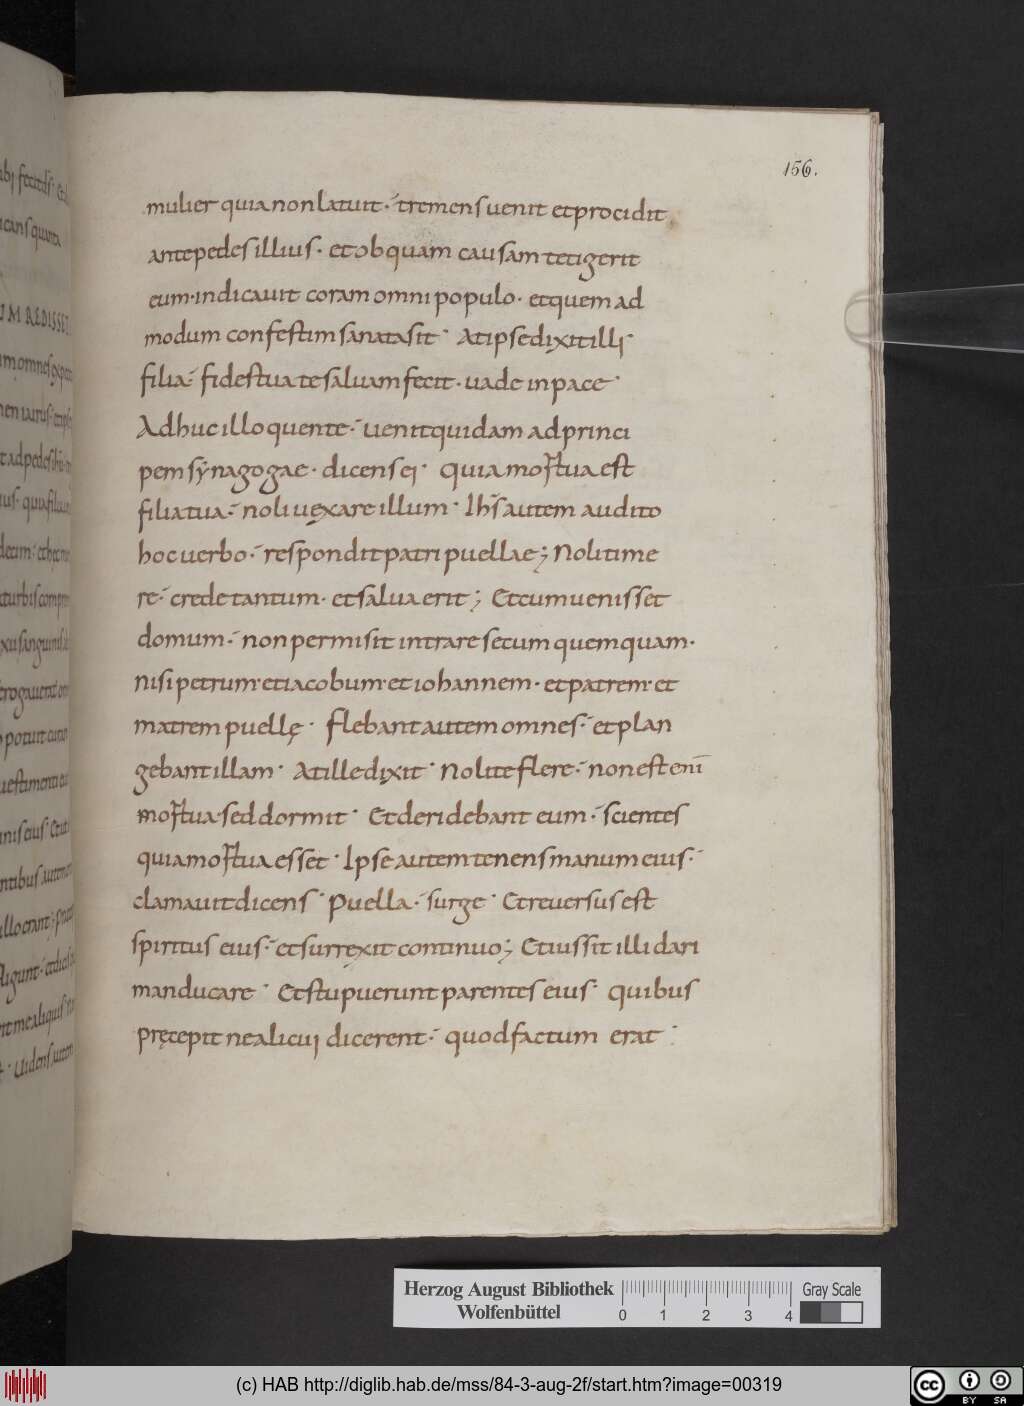 156.
mulier quia non latuit · tremens venit et procidit
ante pedes illius · et ob quam causam tetigerit
eum · indicauit coram omni populo · et quem ad
modum confestim sanata sit · At ipse dixit illi ·
filia · fides tua te saluam fecit · uade in pace ·
Adhuc illo quente · uenit quidam ad princi
pem synagogae · dicens ei · quia mortua est
filia tua · noli uexare illum · Ihs autem audito
hoc uerbo · respondit patri puellae; Noli time
re · crede tantum · et salua erit; Et cum uenisset
domum · non permisit intrare secum quemquam ·
nisi petrum · et iacobum · et iohannem · et patrem · et
matrem puellę · flebant autem omnes · et plan
gebant illam · At ille dixit · Nolite flere · non est enī
mortua · sed dormit · Et deridebant eum · scientes
quia mortua esset · Ipse autem tenens manum eius ·
clamauit dicens · Puella · surge · Et reuersus est
spiritus eius · et surrexit continuo; Et iussit illi dari
manducare · Et stupuerunt parentes eius · quibus
pręcepit ne alicui dicerent · quod factum erat :
Herzog August Bibliothek
Wolfenbüttel
0 1 2 3 4
Gray Scale
(c) HAB http://diglib.hab.de/mss/84-3-aug-2f/start.htm?image=00319
cc BY SA